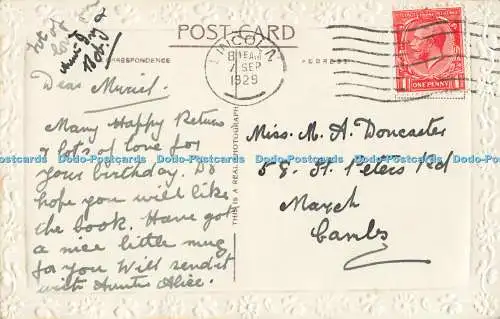 POST CARD
CORRESPONDENCE
ADDRESS
LINCOLN
8 15 AM
7 SEP
1929
ONE PENNY
lots of
love from
Aunty &
Bob.
Dear Muriel.
Many Happy Return
& lots of love for
your birthday. Do
hope you will like
the book. Have got
a nice little mug
for you Will send it
with Auntie Alice.
THIS IS A REAL PHOTOGRAPH
Miss. M. A. Doncaster
58. St. Peters Rd
March
Cambs
Dodo-Postcards Dodo-Postcards Dodo-Postcards Dodo-Postcards Dodo-Postcards